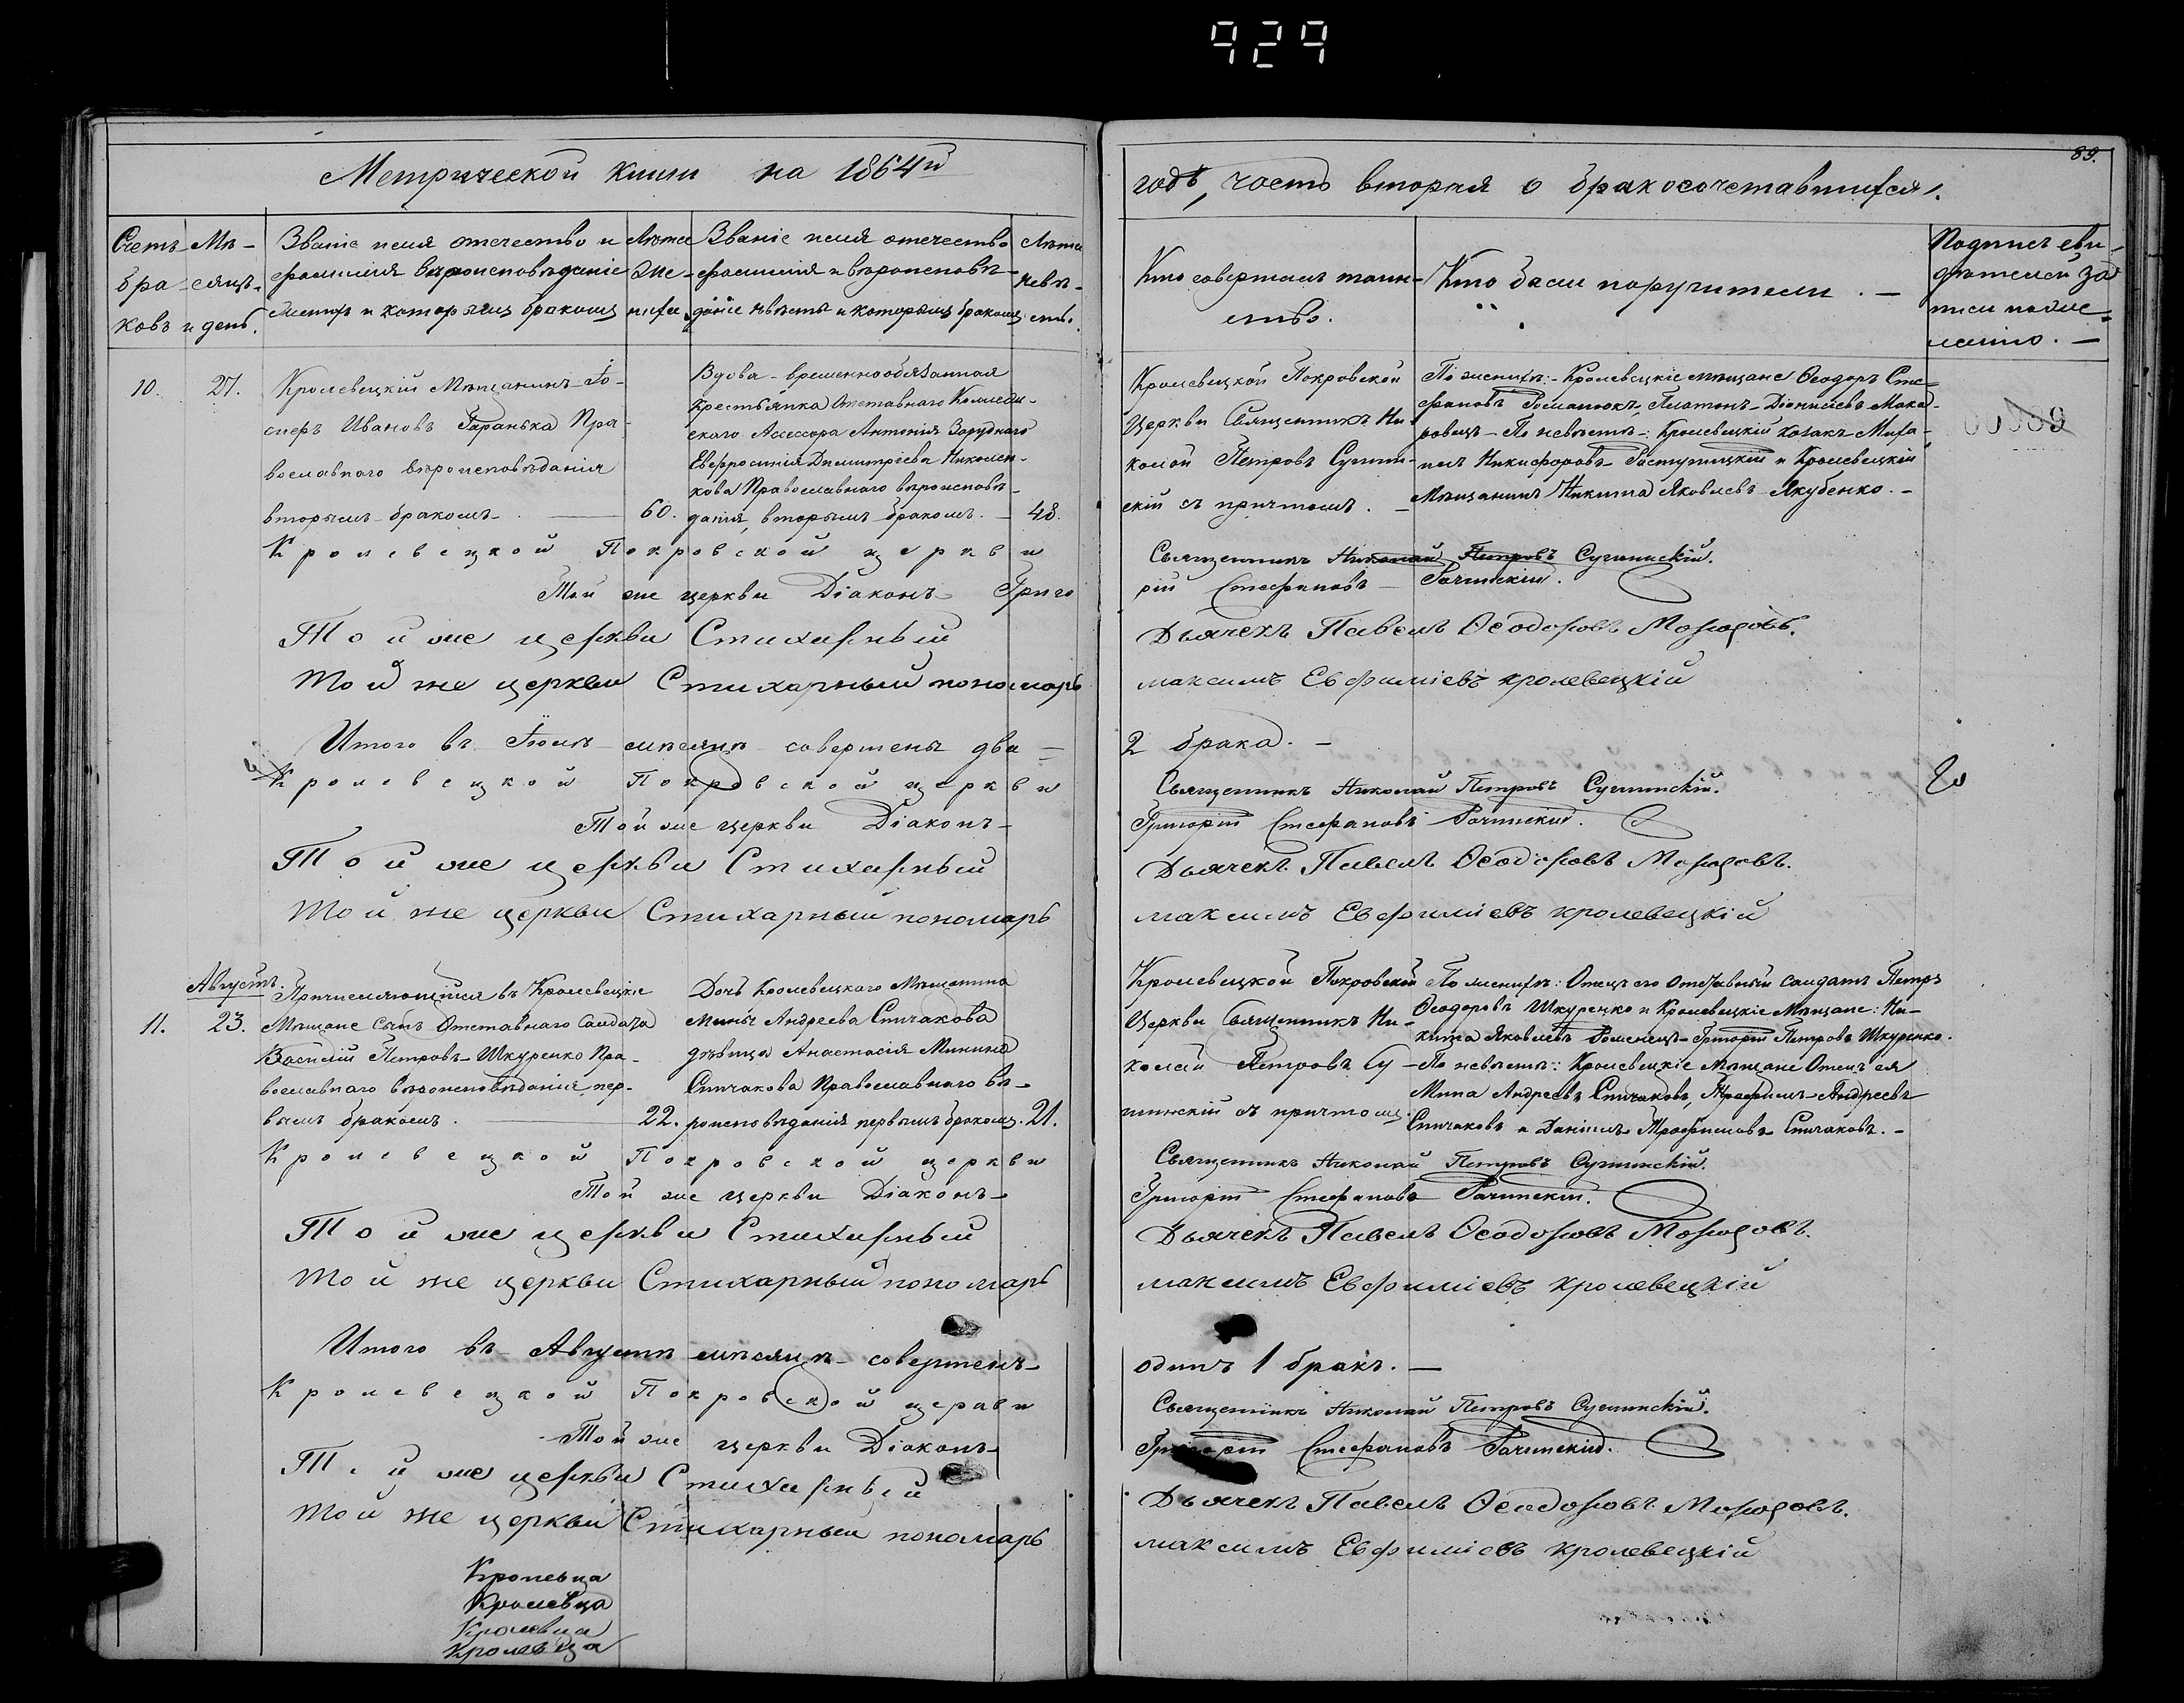 929
89.
Метрической книги на 1864й
годъ, часть вторая о бракосочетавшихся.
Счетъ бра-
ковъ
Мѣ-
сяцъ
и день.
Званіе имя отечество и
фамилія вѣроисповѣданіе
жениха и которымъ бракомъ
Лѣта
же-
ниха
Званіе имя отечество
фамилія и вѣроисповѣ-
даніе невѣсты и которымъ бракомъ
Лѣта
невѣ-
сты.
Кто совершалъ таин-
ство.
Кто были поручители. —
Подпись сви-
дѣтелей за-
писи по же-
ланію. —
10.
27.
Кролевецкій Мѣщанинъ Іо-
сифъ Ивановъ Таранька Пра-
вославнаго вѣроисповѣданія
вторымъ бракомъ
60.
Вдова временнообязанная
Крестьянка Отставнаго Коллеж-
скаго Ассесора Антонія Заруднаго
Евфросинія Димитріева
Православнаго вѣроисповѣ-
данія, вторымъ бракомъ. —
48.
Кролевецкой Покровской
Церкви Священникъ Ни-
колай Петровъ
скій съ причтомъ. —
По женихѣ: Кролевецкіе мѣщане Ѳеодоръ Сте-
фановъ Романюкъ, Платонъ Діонисіевъ Мака-
ровецъ — По невѣстѣ: Кролевецкій козакъ Миха-
илъ Никифоровъ и Кролевецкій
Мѣщанинъ Никита Яковлевъ Якубенко. —
Кролевецкой Покровской церкви
Священникъ Николай Петровъ
Той же церкви Діаконъ Григо
рій Стефановъ Рачинскій.
Той же церкви Стихарный
Дьячекъ Павелъ Ѳеодоровъ
Той же церкви Стихарный пономарь
максимъ Евфиміевъ кролевецкій
Итого въ Іюлѣ мѣсяцѣ совершены два —
2 брака. —
Кролевецкой Покровской церкви
Священникъ Николай Петровъ
Той же церкви Діаконъ
Григорій Стефановъ Рачинскій.
Той же церкви Стихарный
Дьячекъ Павелъ Ѳеодоровъ
Той же церкви Стихарный пономарь
максимъ Евфиміевъ кролевецкій
Августъ.
11.
23.
Причисляющійся въ Кролевецкіе
Мѣщане сынъ Отставнаго Солдата
Василій Петровъ Шкуренко Пра-
вославнаго вѣроисповѣданія, пер-
вымъ бракомъ.
22.
Дочь Кролевецкаго Мѣщанина
Мины Андреева Спичакова
дѣвица Анастасія Минина
Спичакова Православнаго вѣ-
роисповѣданія первымъ бракомъ.
21.
Кролевецкой Покровской
Церкви Священникъ Ни-
колай Петровъ
съ причтомъ.
По женихѣ: Отецъ его Отставный солдатъ Петръ
Ѳеодоровъ Шкуренко и Кролевецкіе Мѣщане: Ни-
кита Яковлевъ Роменецъ Григорій Петровъ Шкуренко.
— По невѣстѣ: Кролевецкіе Мѣщане Отецъ ея
Мина Андреевъ Спичаковъ, Трофимъ Андреевъ
Спичаковъ и Даніилъ Трофимовъ Спичаковъ. —
Кролевецкой Покровской церкви
Священникъ Николай Петровъ
Той же церкви Діаконъ
Григорій Стефановъ Рачинскій.
Той же церкви Стихарный
Дьячекъ Павелъ Ѳеодоровъ
Той же церкви Стихарный пономарь
максимъ Евфиміевъ кролевецкій
Итого въ Августѣ мѣсяцѣ совершенъ
одинъ 1 бракъ. —
Кролевецкой Покровской церкви
Священникъ Николай Петровъ
Той же церкви Діаконъ
Григорій Стефановъ Рачинскій.
Той же церкви Стихарный
Дьячекъ Павелъ Ѳеодоровъ
Той же церкви Стихарный пономарь
максимъ Евфиміевъ кролевецкій
Кролевца
Кролевца
Кролевца
Кролевца